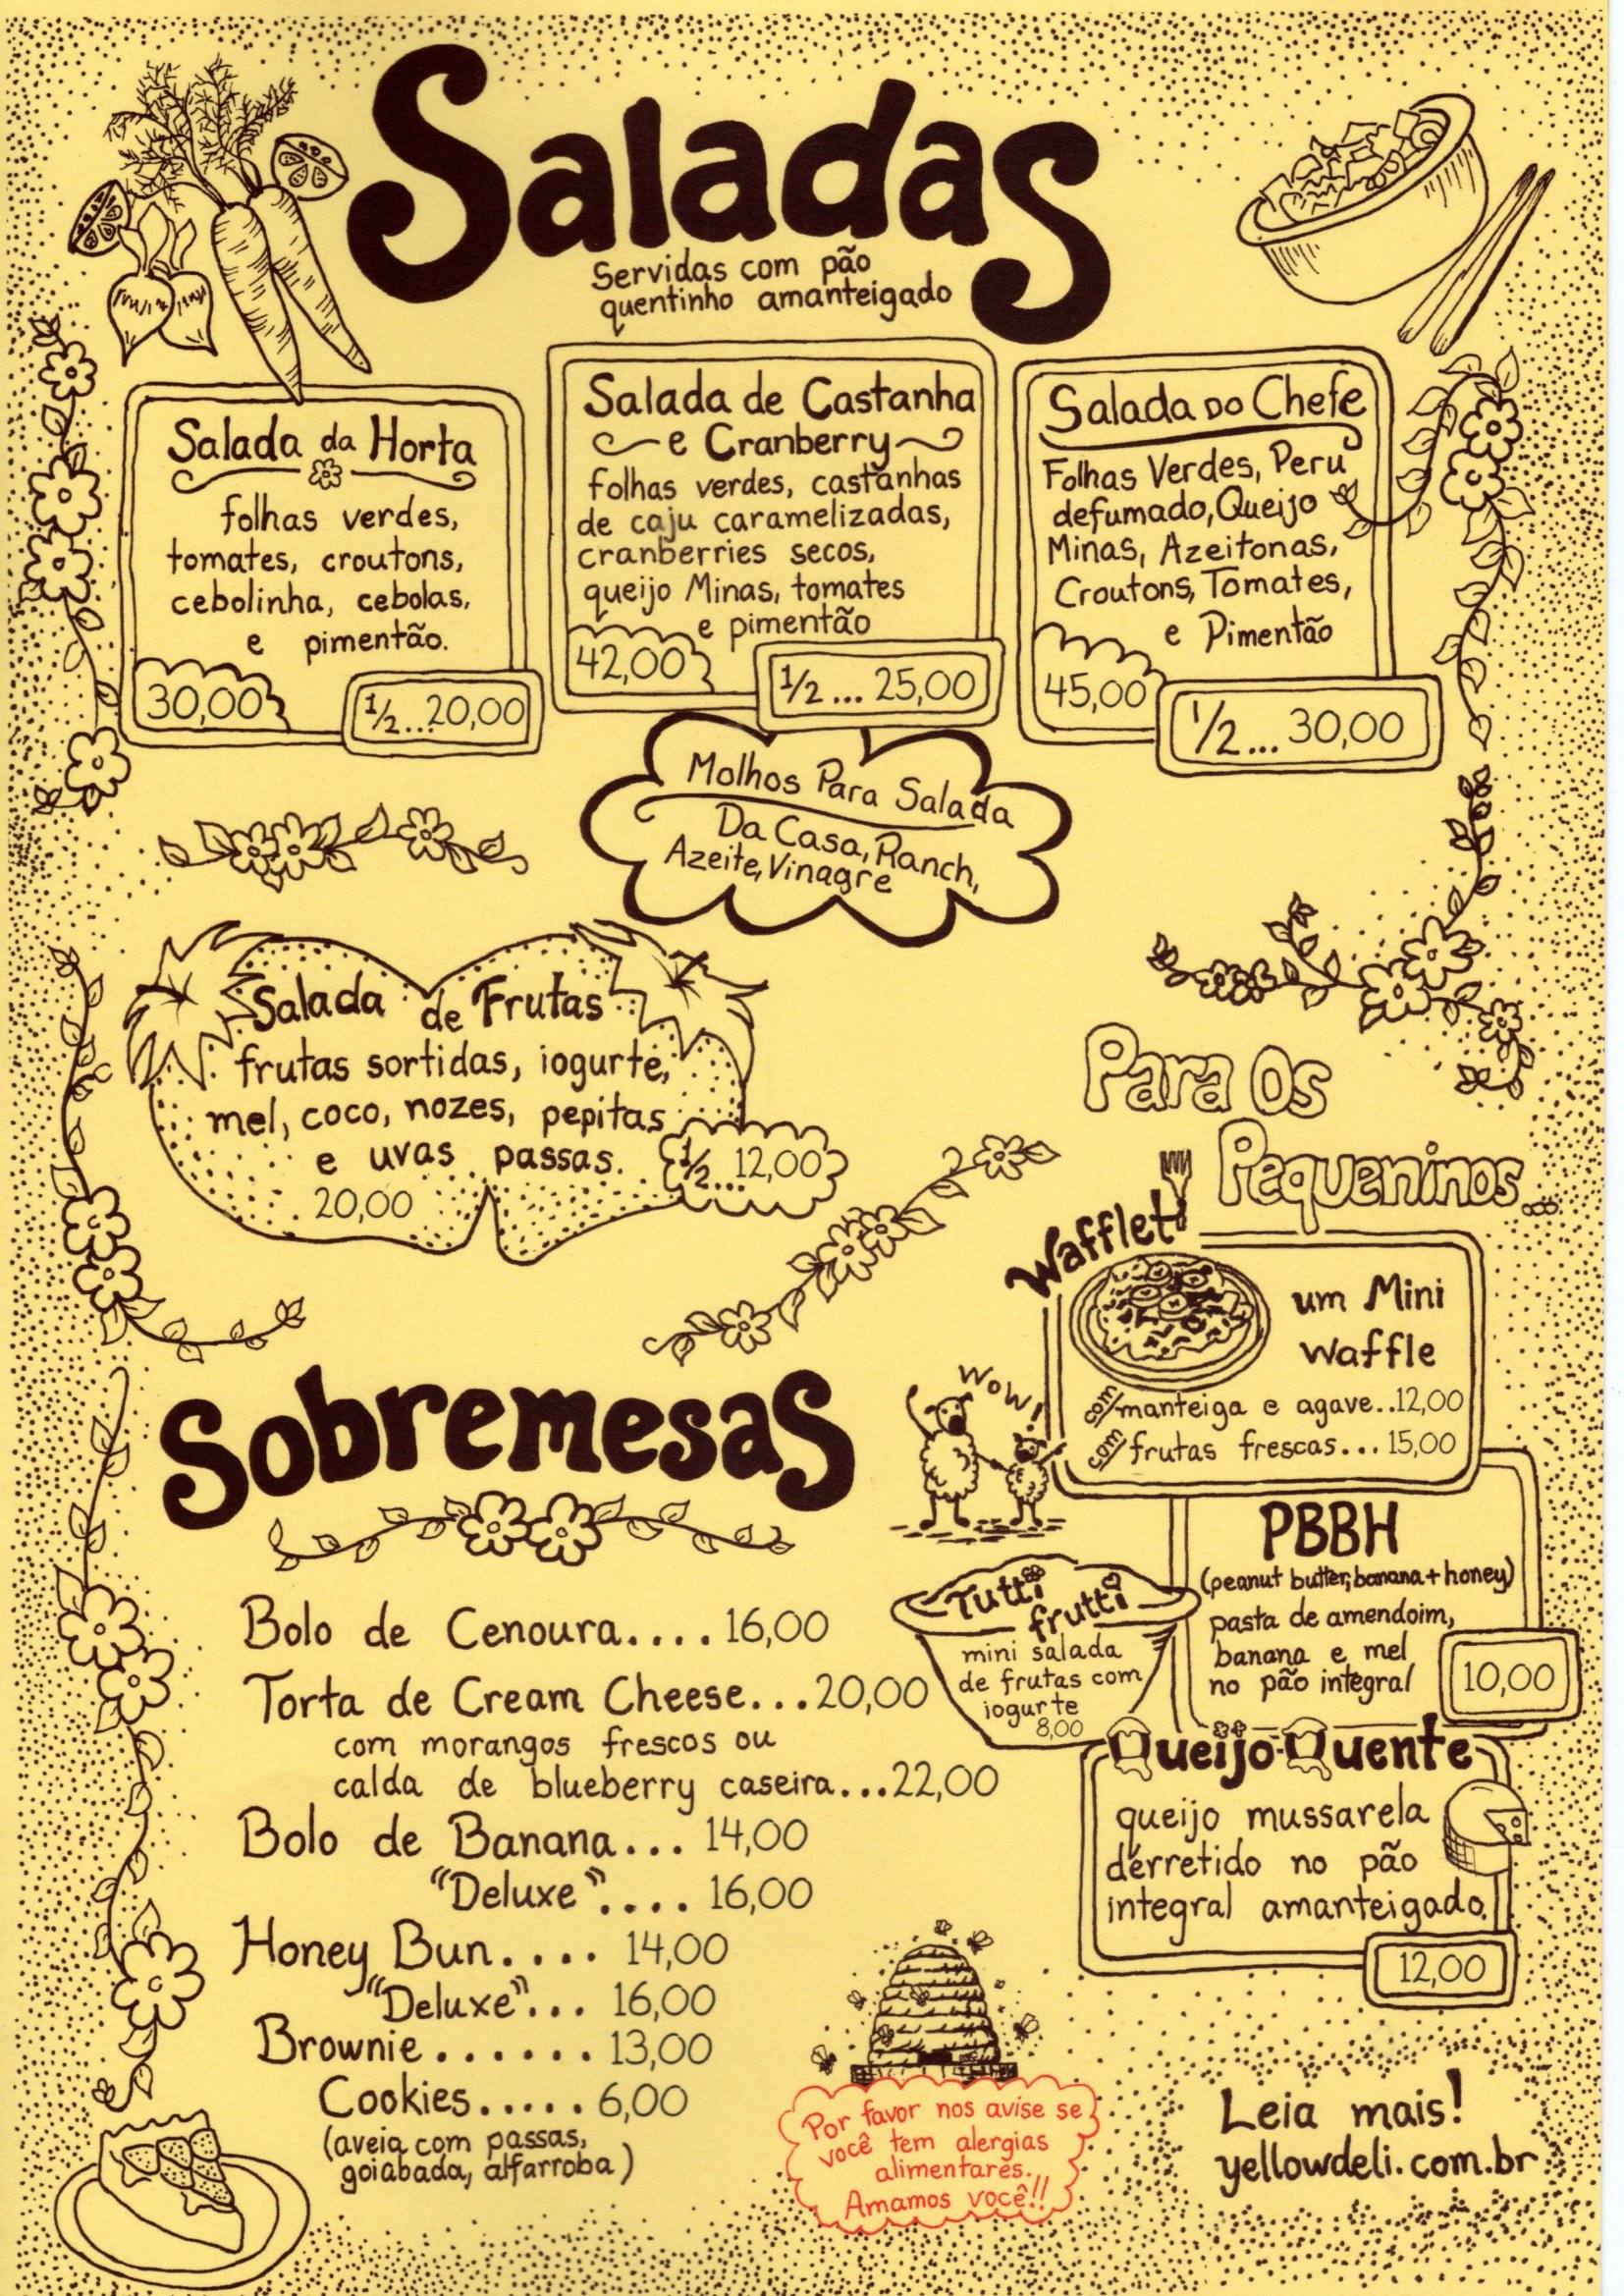 Saladas
Servidas com pão
quentinho amanteigado
Salada da Horta
folhas verdes,
tomates, croutons,
cebolinha, cebolas,
e pimentão.
30,00
1/2...20,00
Salada de Castanha
e Cranberry
folhas verdes, castanhas
de caju caramelizadas,
cranberries secos,
queijo Minas, tomates
e pimentão
42,00
1/2... 25,00
Salada DO Chefe
Folhas Verdes, Peru
defumado, Queijo
Minas, Azeitonas,
Croutons, Tomates,
e Pimentão
45,00
1/2... 30,00
Molhos Para Salada
Da Casa, Ranch,
Azeite, Vinagre
Salada de Frutas
frutas sortidas, iogurte,
mel, coco, nozes, pepitas
e uvas passas.
20,00
1/2...12,00
Para Os
Pequeninos...
Wafflet!
um Mini
waffle
com manteiga e agave..12,00
com frutas frescas...15,00
WOW!
PBBH
(peanut butter, banana + honey)
pasta de amendoim,
banana e mel
no pão integral
10,00
Tutti
frutti
mini salada
de frutas com
iogurte
8,00
Queijo-Quente
queijo mussarela
derretido no pão
integral amanteigado.
12,00
Sobremesas
Bolo de Cenoura....16,00
Torta de Cream Cheese...20,00
com morangos frescos ou
calda de blueberry caseira...22,00
Bolo de Banana... 14,00
"Deluxe".... 16,00
Honey Bun.... 14,00
"Deluxe"... 16,00
Brownie...... 13,00
Cookies..... 6,00
(aveia com passas,
goiabada, alfarroba)
Por favor nos avise se
você tem alergias
alimentares.
Amamos você!!
Leia mais!
yellowdeli.com.br